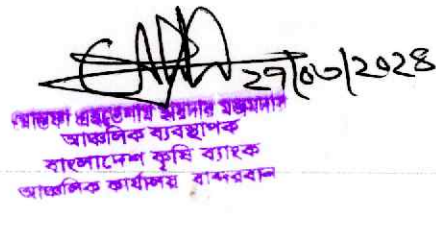 ২৭/০৩/২০২৪
মজুমদার
আঞ্চলিক ব্যবস্থাপক
বাংলাদেশ কৃষি ব্যাংক
আঞ্চলিক কার্যালয় বান্দরবান